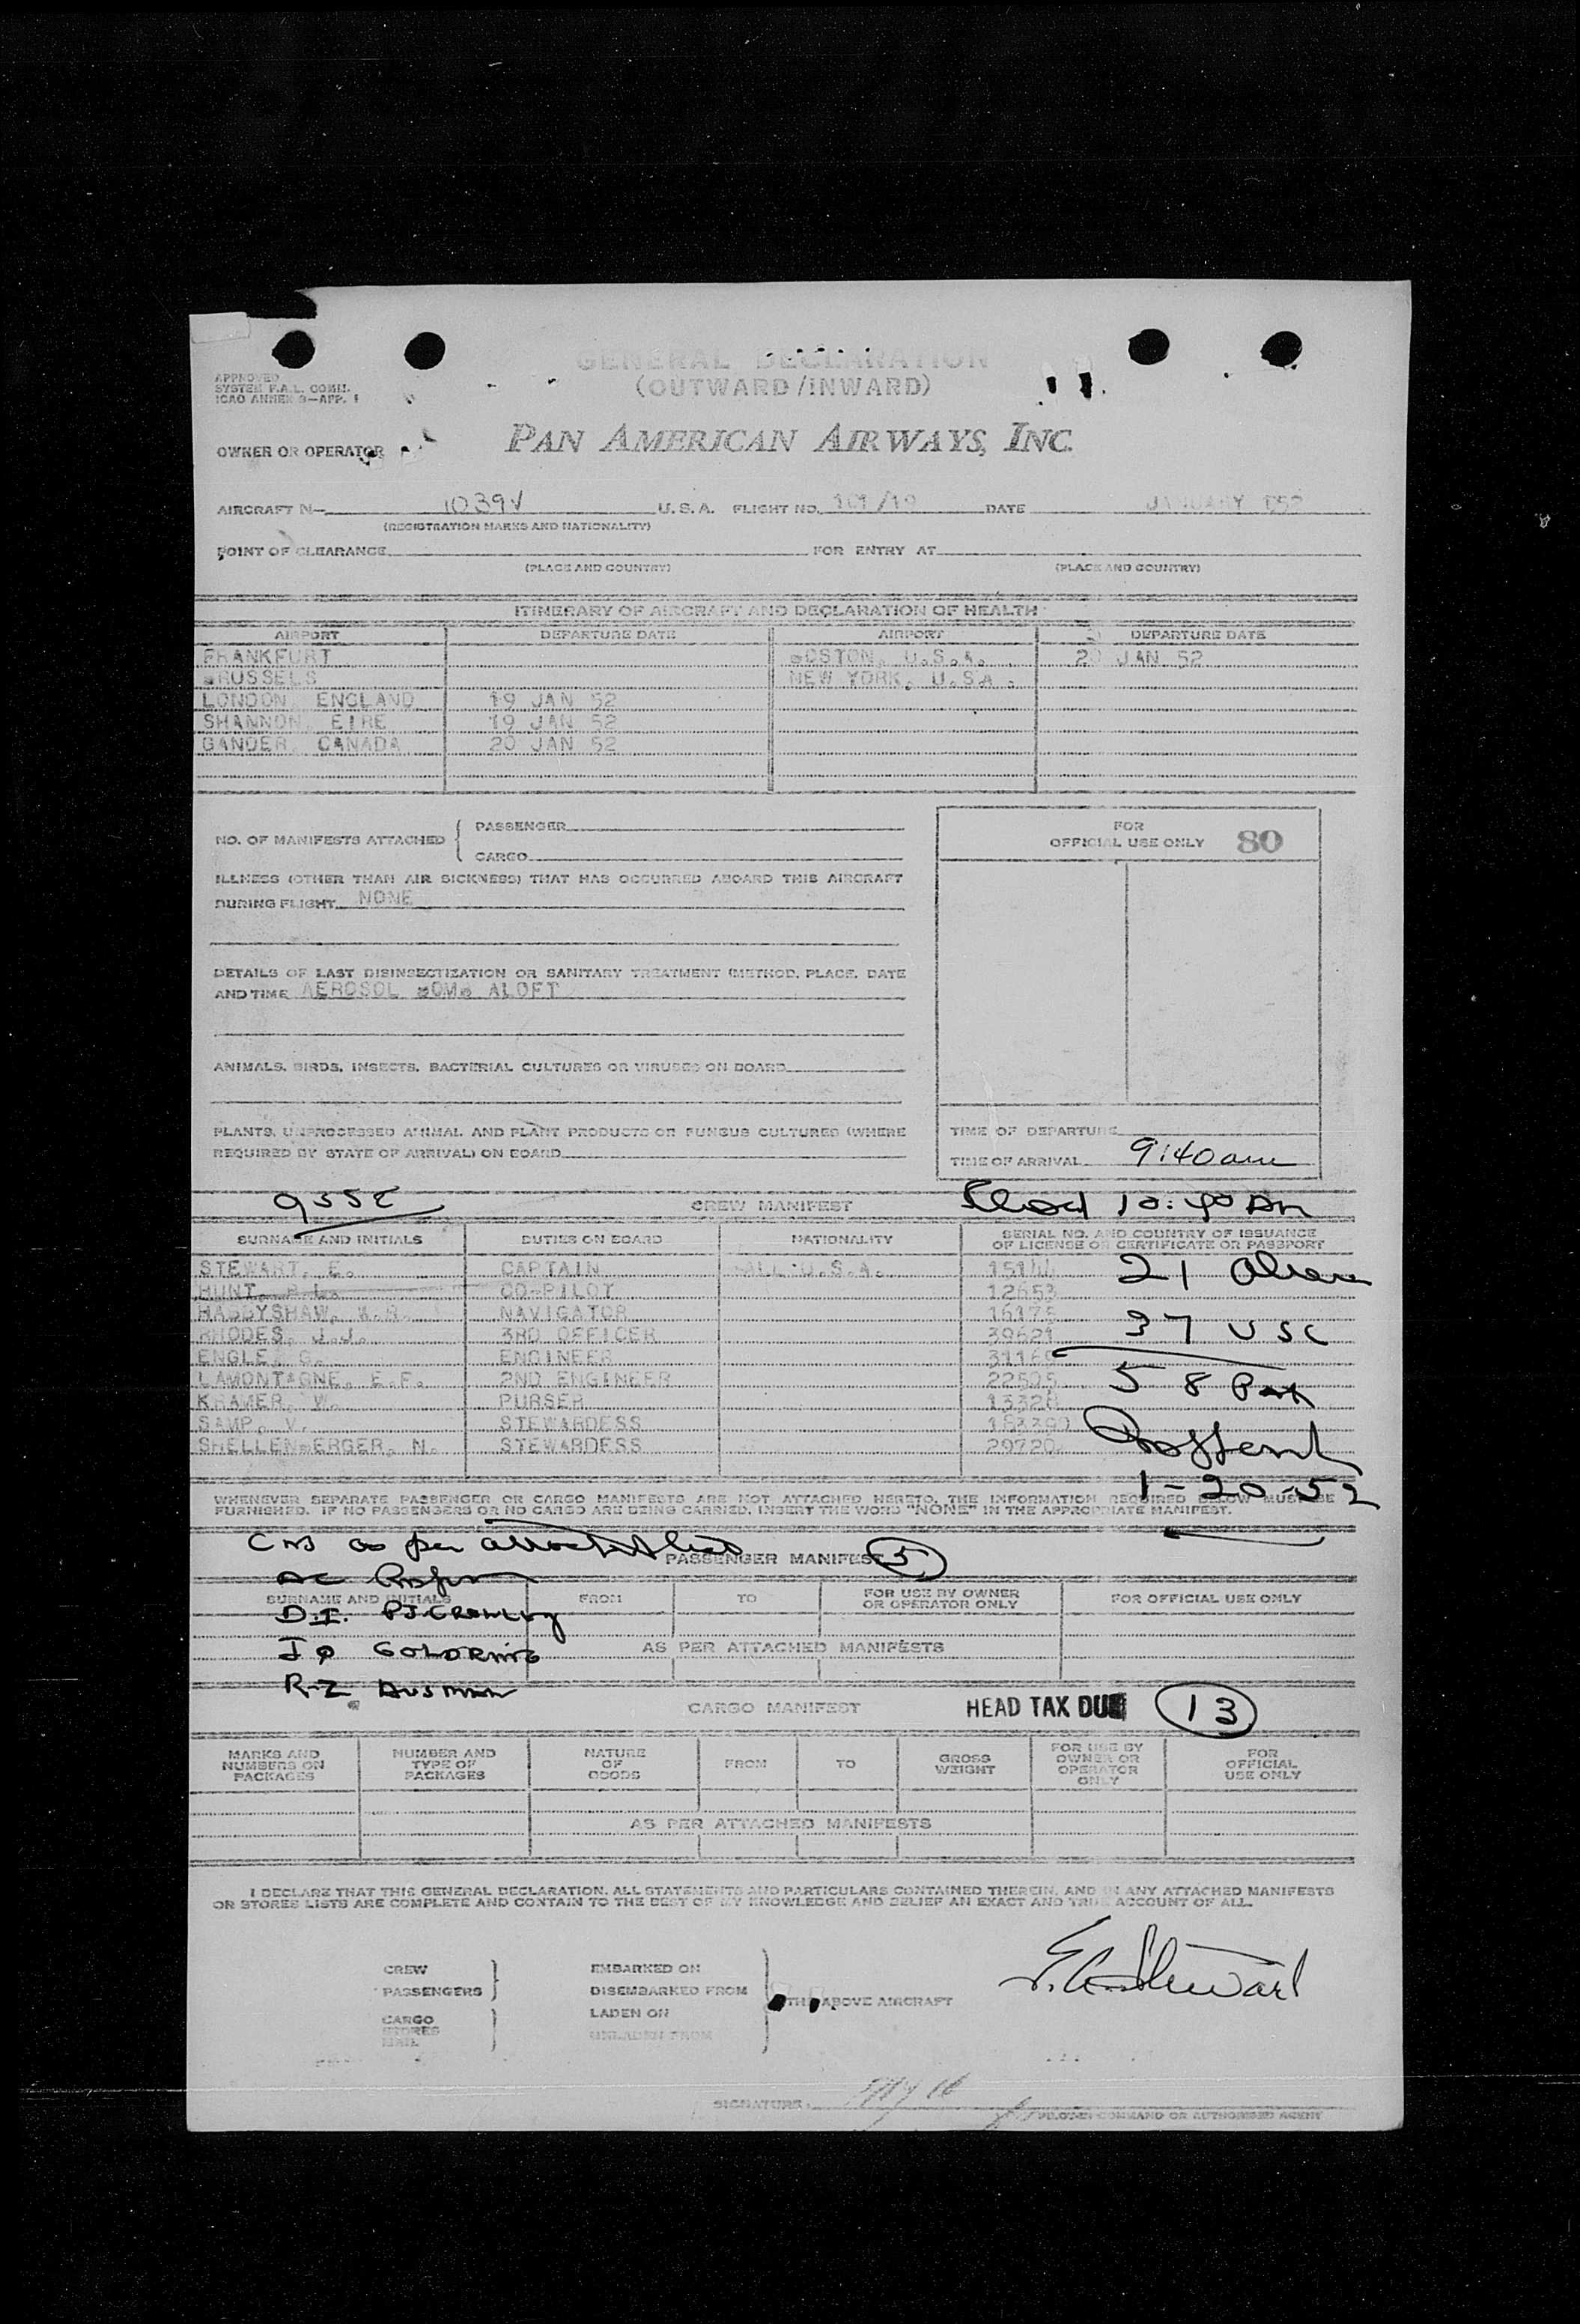 GENERAL DECLARATION
(OUTWARD/INWARD)
APPROVED
SYSTEM F.A.L. COMM.
ICAO ANNEX 9—APP. 1
OWNER OR OPERATOR
PAN AMERICAN AIRWAYS, INC.
AIRCRAFT N— 1039V U.S.A. FLIGHT NO. 101/19 DATE JANUARY 1952
(REGISTRATION MARKS AND NATIONALITY)
POINT OF CLEARANCE FOR ENTRY AT
(PLACE AND COUNTRY) (PLACE AND COUNTRY)
ITINERARY OF AIRCRAFT AND DECLARATION OF HEALTH
AIRPORT DEPARTURE DATE AIRPORT DEPARTURE DATE
FRANKFURT BOSTON, U.S.A. 20 JAN 52
BRUSSELS NEW YORK, U.S.A.
LONDON, ENGLAND 19 JAN 52
SHANNON, EIRE 19 JAN 52
GANDER, CANADA 20 JAN 52
NO. OF MANIFESTS ATTACHED { PASSENGER
CARGO
FOR
OFFICIAL USE ONLY 80
ILLNESS (OTHER THAN AIR SICKNESS) THAT HAS OCCURRED ABOARD THIS AIRCRAFT
DURING FLIGHT NONE
DETAILS OF LAST DISINSECTIZATION OR SANITARY TREATMENT (METHOD, PLACE, DATE
AND TIME AEROSOL BOMB ALOFT
ANIMALS, BIRDS, INSECTS, BACTERIAL CULTURES OR VIRUSES ON BOARD
PLANTS, UNPROCESSED ANIMAL AND PLANT PRODUCTS OR FUNGUS CULTURES (WHERE
REQUIRED BY STATE OF ARRIVAL) ON BOARD
TIME OF DEPARTURE
TIME OF ARRIVAL 9:40am
CREW MANIFEST 10:40 am
SURNAME AND INITIALS DUTIES ON BOARD NATIONALITY SERIAL NO. AND COUNTRY OF ISSUANCE
OF LICENSE OR CERTIFICATE OR PASSPORT
STEWART, E. CAPTAIN ALL U.S.A. 15144 21 Aliens
HUNT, P.L. CO-PILOT 12653
HADDYSHAW, W.R. NAVIGATOR 16175
RHODES, J.J. 3RD OFFICER 39621 37 USC
ENGLE, G. ENGINEER 31169
LAMONTAGNE, E.F. 2ND ENGINEER 22505 58 Pax
KRAMER, W. PURSER 13328
SAMP, V. STEWARDESS 183390
SHELLENBERGER, N. STEWARDESS 29720
1-20-52
WHENEVER SEPARATE PASSENGER OR CARGO MANIFESTS ARE NOT ATTACHED HERETO, THE INFORMATION REQUIRED BELOW MUST BE
FURNISHED. IF NO PASSENGERS OR NO CARGO ARE BEING CARRIED, INSERT THE WORD "NONE" IN THE APPROPRIATE MANIFEST.
as per attached list
PASSENGER MANIFEST 5
SURNAME AND INITIALS FROM TO FOR USE BY OWNER
OR OPERATOR ONLY FOR OFFICIAL USE ONLY
D.I. PJ CROWLEY
AS PER ATTACHED MANIFESTS
IO GOLDRING
RI AUSMAN
CARGO MANIFEST HEAD TAX DUE 13
MARKS AND
NUMBERS ON
PACKAGES
NUMBER AND
TYPE OF
PACKAGES
NATURE
OF
GOODS
FROM
TO
GROSS
WEIGHT
FOR USE BY
OWNER OR
OPERATOR
ONLY
FOR
OFFICIAL
USE ONLY
AS PER ATTACHED MANIFESTS
I DECLARE THAT THIS GENERAL DECLARATION, ALL STATEMENTS AND PARTICULARS CONTAINED THEREIN, AND IN ANY ATTACHED MANIFESTS
OR STORES LISTS ARE COMPLETE AND CONTAIN TO THE BEST OF MY KNOWLEDGE AND BELIEF AN EXACT AND TRUE ACCOUNT OF ALL.
E.A. Stewart
CREW
PASSENGERS
CARGO
STORES
MAIL
EMBARKED ON
DISEMBARKED FROM
LADEN ON
UNLADEN FROM
THE ABOVE AIRCRAFT
SIGNATURE
PILOT IN COMMAND OR AUTHORISED AGENT